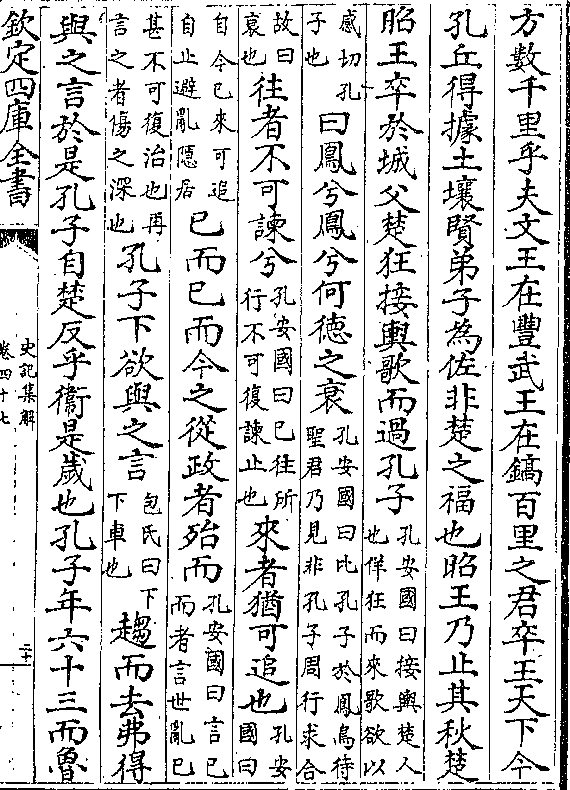 方數千里乎夫文王在豐武王在鎬百里之君卒王天下今
孔丘得據土壤賢弟子為佐非楚之福也昭王乃止其秋楚
昭王卒於城父楚狂接輿歌而過孔子孔安國曰接輿楚人也佯狂而來歌欲以
感切孔子也曰鳳兮鳳兮何德之衰孔安國曰比孔子於鳳鳥待聖君乃見非孔子周行求合
故曰衰也往者不可諫兮孔安國曰已往所行不可復諫止也來者猶可追也孔安國曰
自今已來可追自止避亂隱居已而已而今之從政者殆而孔安國曰言已而者言世亂已
甚不可復治也再言之者傷之深也孔子下欲與之言包氏曰下下車也趨而去弗得
與之言於是孔子自楚反乎衞是歲也孔子年六十三而魯
欽定四庫全書
史記集解
卷四十七